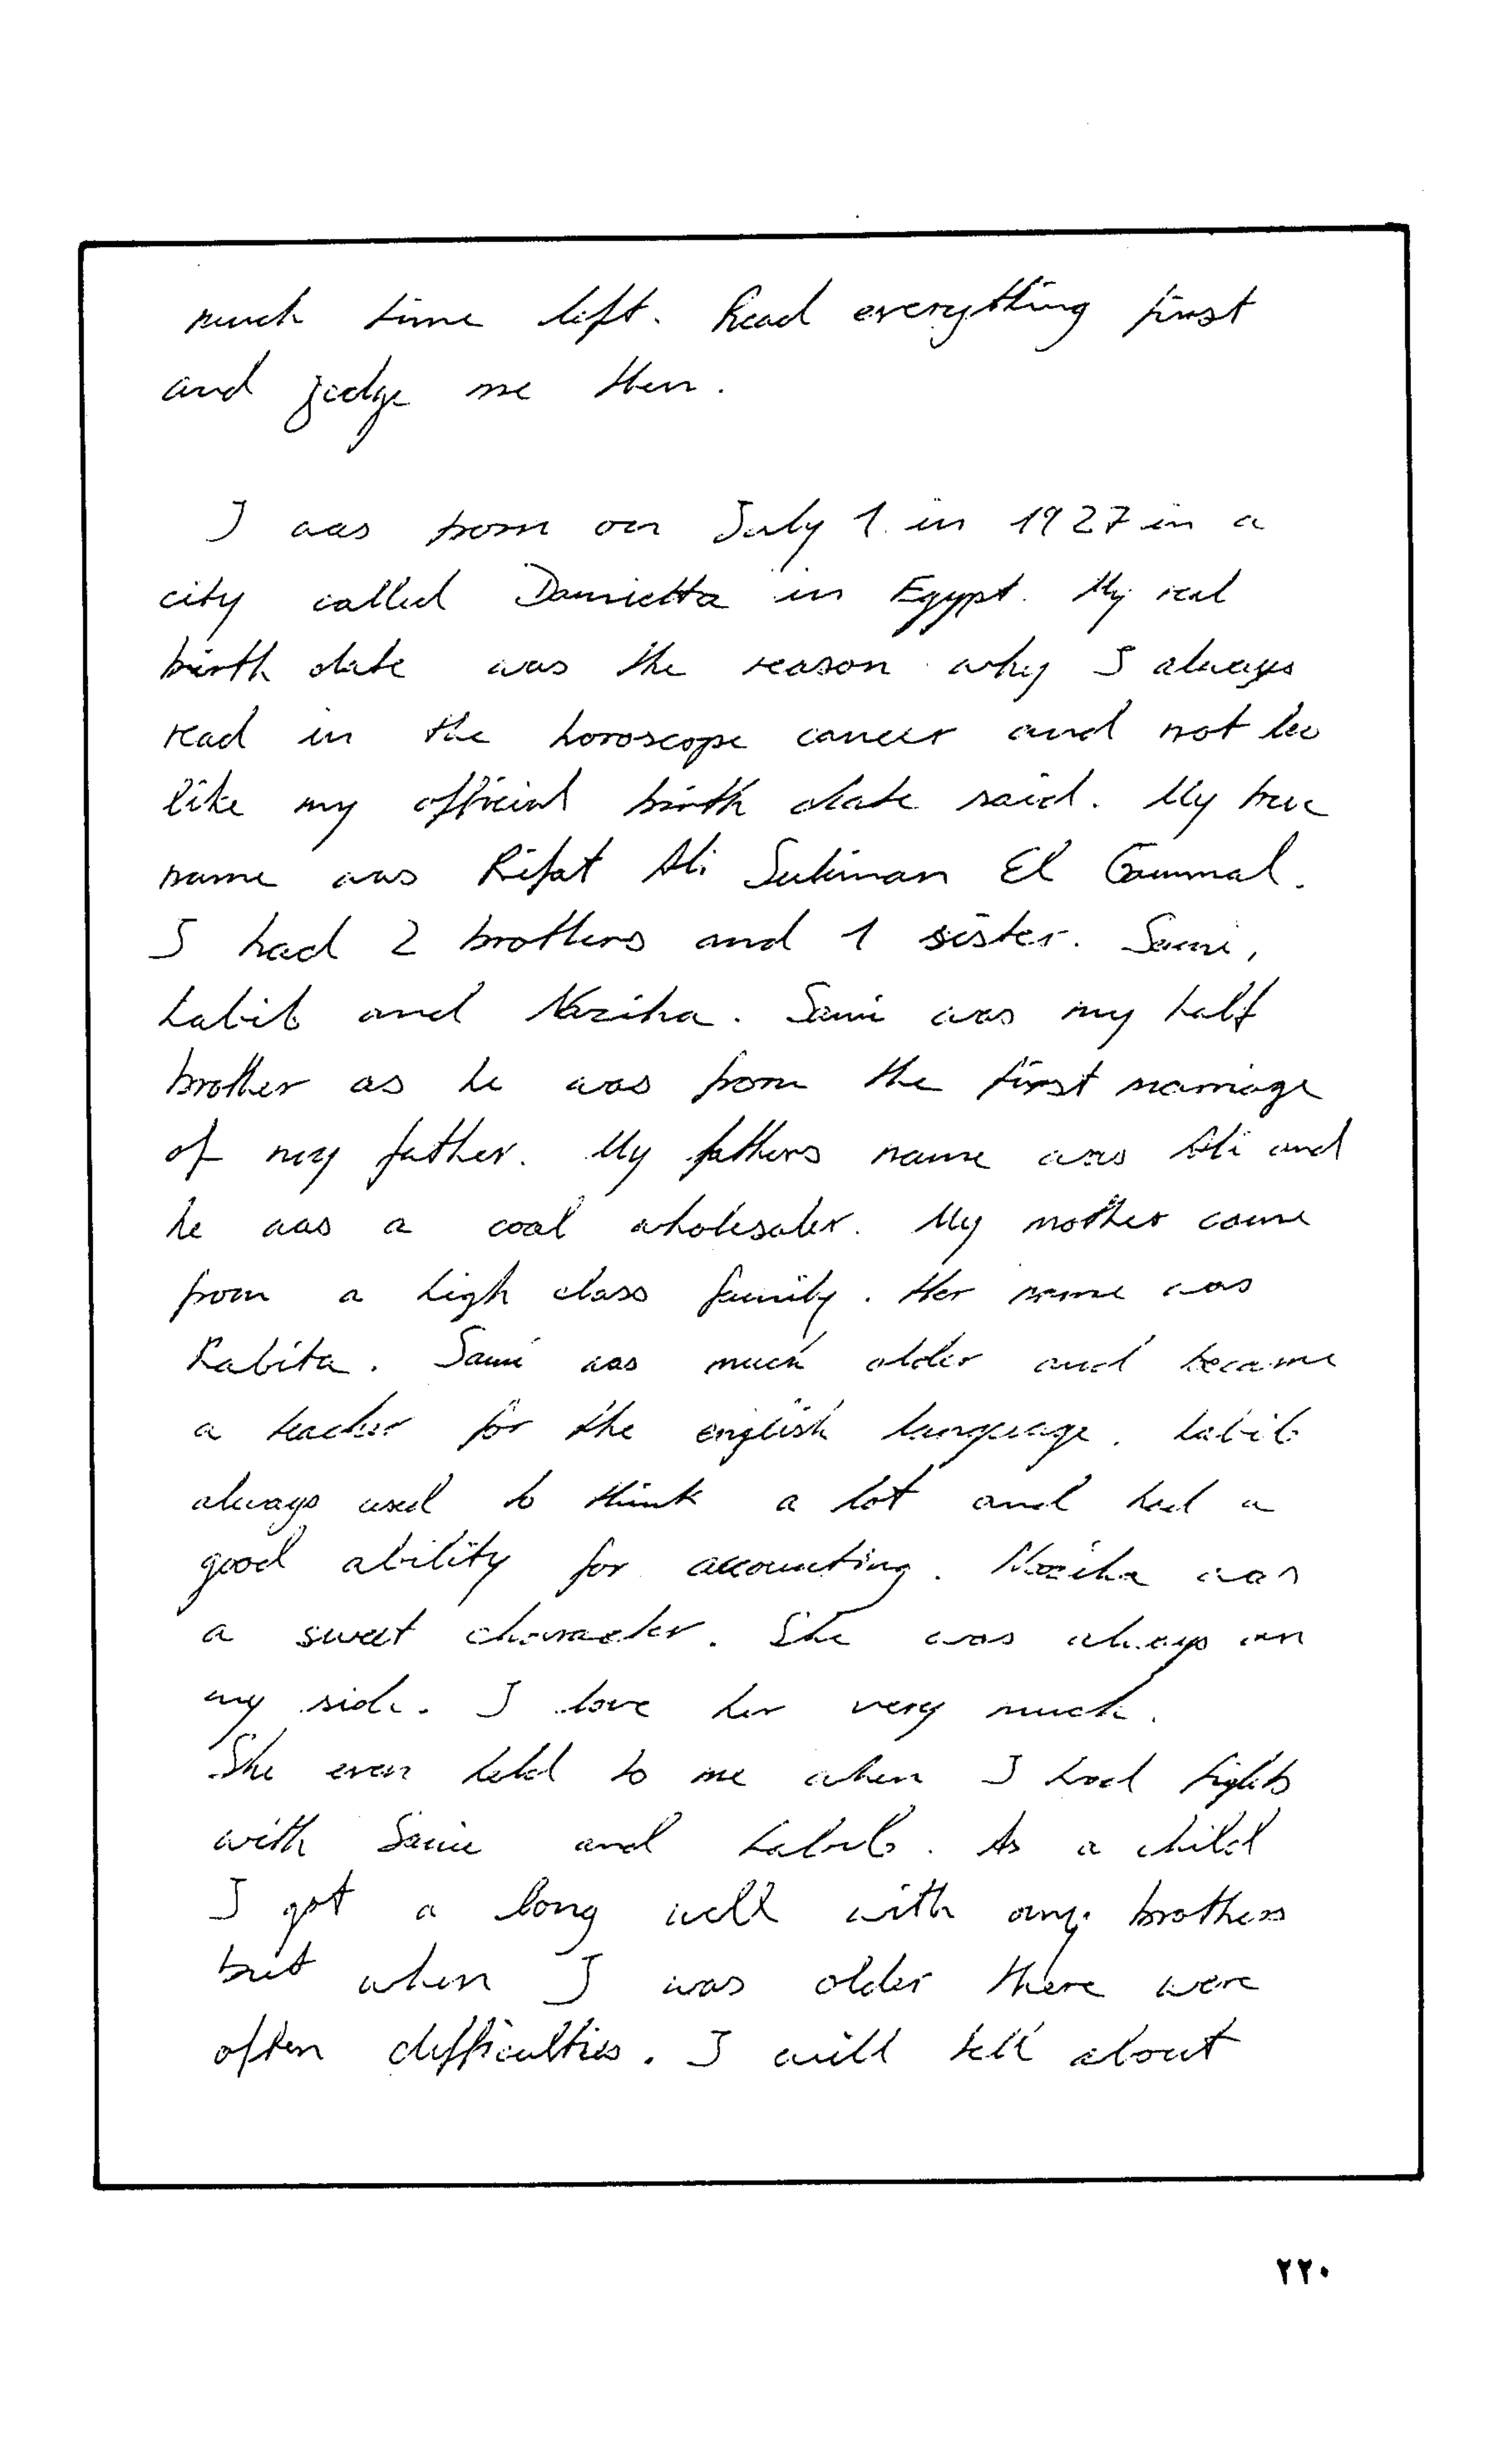 much time left. Read everything first
and judge me then.
I was born on July 1. in 1927 in a
city called Damietta in Egypt. My real
birth date was the reason why I always
read in the horoscope cancer and not leo
like my official birth date said. My true
name was Rifat Ali Suliman El Gammal.
I had 2 brothers and 1 sister. Sami,
Labib and Naziha. Sami was my half
brother as he was from the first marriage
of my father. My fathers name was Ali and
he was a coal wholesaler. My mother came
from a high class family. Her name was
Rabita. Sami was much older and became
a teacher for the english language. Labib
always used to think a lot and had a
good ability for accounting. Naziha was
a sweet character. She was always on
my side. I love her very much.
She even held to me when I had fights
with Sami and Labib. As a child
I got a long well with my brothers
but when I was older there were
often difficulties. I will tell about
٢٢٠